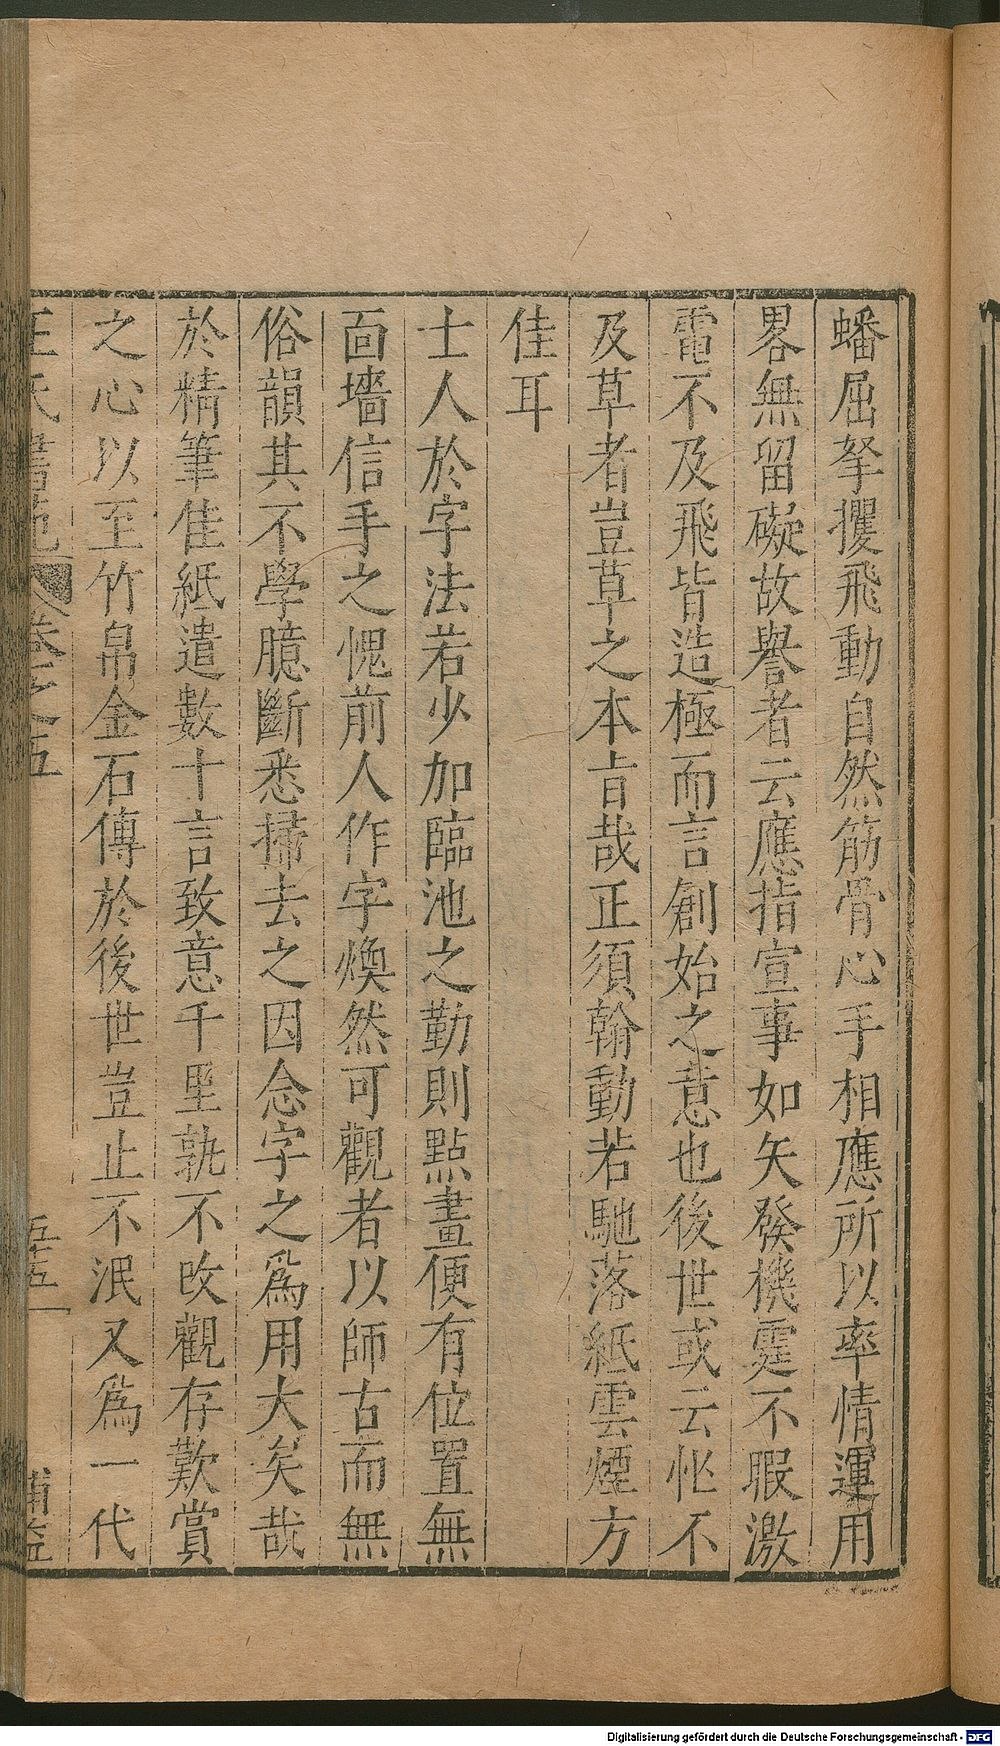 蟠屈拏攫飛動自然筋骨心手相應所以率情運用
畧無留礙故譽者云應指宣事如矢發機霆不暇激
電不及飛皆造極而言創始之意也後世或云忙不
及草者豈草之本旨哉正須翰動若馳落紙雲煙方
佳耳
士人於字法若少加臨池之勤則點畫便有位置無
面墻信手之愧前人作字煥然可觀者以師古而無
俗韻其不學臆斷悉掃去之因念字之爲用大矣哉
於精筆佳紙遣數十言致意千里孰不改觀存歎賞
之心以至竹帛金石傳於後世豈止不泯又爲一代
王氏書苑 卷之五 五十五 補益
Digitalisierung gefördert durch die Deutsche Forschungsgemeinschaft - DFG